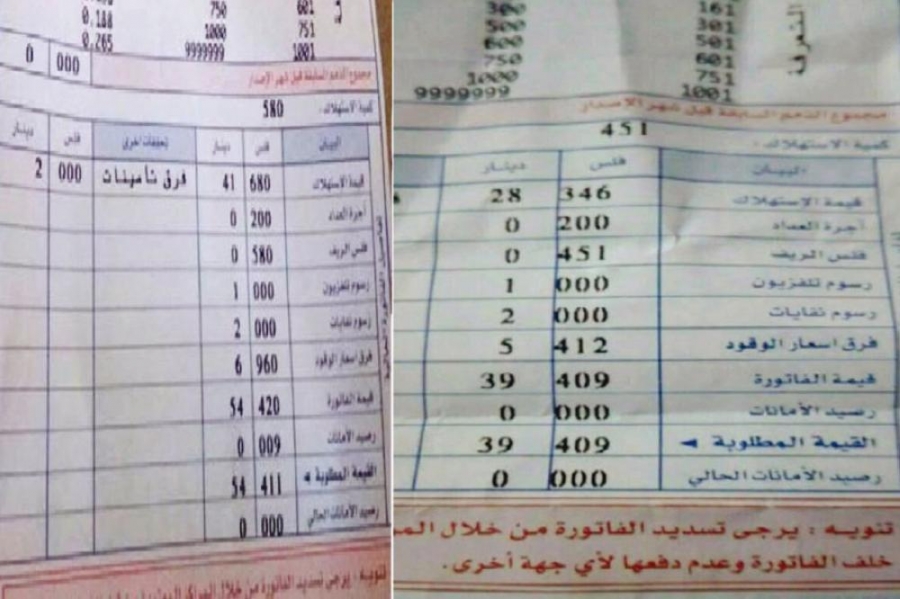 0.188 750 601
0.265 1000 751
9999999 1001
0 000 مجموع الذمم السابقة قبل شهر الإصدار
كمية الاستهلاك : 580
البيان فلس دينار تحققات اخرى فلس دينار
قيمة الاستهلاك 680 41 فرق تأمينات 000 2
أجرة العداد 200 0
فلس الريف 580 0
رسوم تلفزيون 000 1
رسوم نفايات 000 2
فرق اسعار الوقود 960 6
قيمة الفاتورة 420 54
رصيد الأمانات 009 0
القيمة المطلوبة ◄ 411 54
رصيد الأمانات الحالي 000 0
تنويه : يرجى تسديد الفاتورة من خلال
300 161
500 301
600 501
750 601
1000 751
9999999 1001
التعرفة
مجموع الذمم السابقة قبل شهر الاصدار
كمية الاستهلاك : 451
البيان فلس دينار
قيمة الإستهلاك 346 28
أجرة العداد 200 0
فلس الريف 451 0
رسوم تلفزيون 000 1
رسوم نفايات 000 2
فرق اسعار الوقود 412 5
قيمة الفاتورة 409 39
رصيد الأمانات 000 0
القيمة المطلوبة ◄ 409 39
رصيد الأمانات الحالي 000 0
تنويه : يرجى تسديد الفاتورة من خلال المر
خلف الفاتورة وعدم دفعها لأي جهة أخرى.